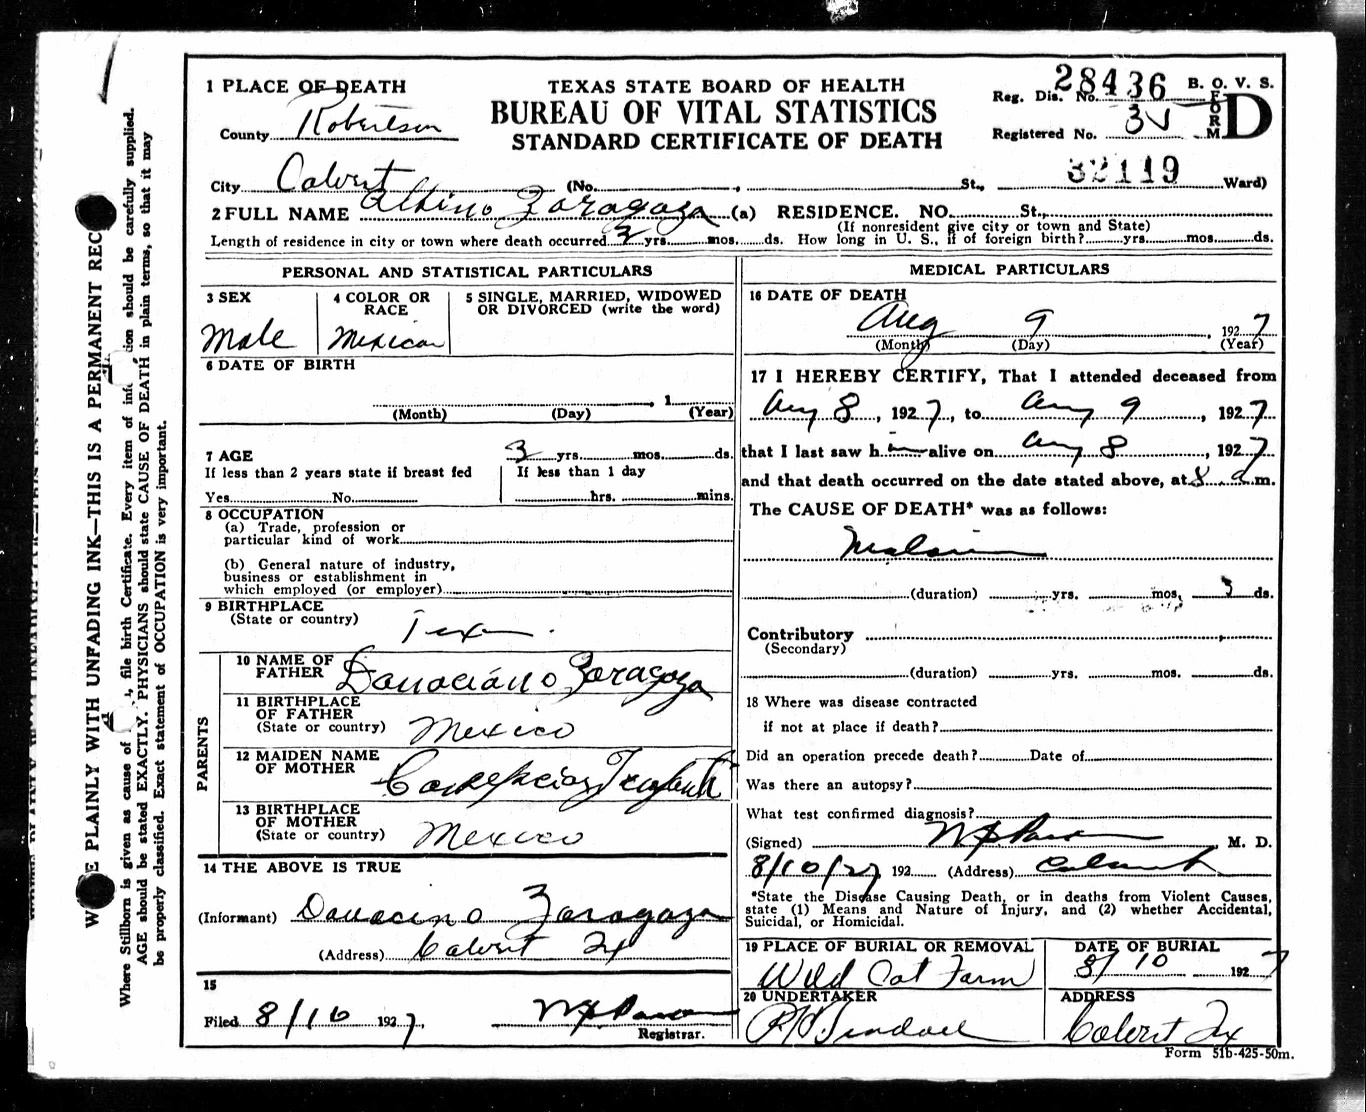 1 PLACE OF DEATH
County Robertson
TEXAS STATE BOARD OF HEALTH
BUREAU OF VITAL STATISTICS
STANDARD CERTIFICATE OF DEATH
Reg. Dis. No. 28436 B. O. V. S.
Registered No. 30 FORM D
32119
City Calvert (No. , St., Ward)
2 FULL NAME Albino Zaragoza (a) RESIDENCE. NO. St.,
(If nonresident give city or town and State)
Length of residence in city or town where death occurred 3 yrs. mos. ds. How long in U. S., if of foreign birth? yrs. mos. ds.
PERSONAL AND STATISTICAL PARTICULARS
3 SEX
Male
4 COLOR OR RACE
Mexican
5 SINGLE, MARRIED, WIDOWED OR DIVORCED (write the word)
6 DATE OF BIRTH
, 1
(Month) (Day) (Year)
7 AGE 3 yrs. mos. ds.
If less than 2 years state if breast fed
Yes No
If less than 1 day
hrs. mins.
8 OCCUPATION
(a) Trade, profession or
particular kind of work
(b) General nature of industry,
business or establishment in
which employed (or employer)
9 BIRTHPLACE
(State or country) Texas.
PARENTS
10 NAME OF FATHER Donaciano Zaragoza
11 BIRTHPLACE OF FATHER
(State or country) Mexico
12 MAIDEN NAME OF MOTHER Concepcion
13 BIRTHPLACE OF MOTHER
(State or country) Mexico
14 THE ABOVE IS TRUE
(Informant) Donacino Zaragoza
(Address) Calvert Tx
15
Filed 8/10 1927,
Registrar.
MEDICAL PARTICULARS
16 DATE OF DEATH
Aug 9 1927
(Month) (Day) (Year)
17 I HEREBY CERTIFY, That I attended deceased from
Aug 8, 1927, to Aug 9, 1927
that I last saw him alive on Aug 8, 1927
and that death occurred on the date stated above, at 8 a m.
The CAUSE OF DEATH* was as follows:
Malaria
(duration) yrs. mos. 3 ds.
Contributory
(Secondary)
(duration) yrs. mos. ds.
18 Where was disease contracted
if not at place if death?
Did an operation precede death? Date of
Was there an autopsy?
What test confirmed diagnosis?
(Signed) M. D.
8/10/27 192 (Address) Calvert
*State the Disease Causing Death, or in deaths from Violent Causes,
state (1) Means and Nature of Injury, and (2) whether Accidental,
Suicidal, or Homicidal.
19 PLACE OF BURIAL OR REMOVAL
Wild Cat Farm
DATE OF BURIAL
8/10 1927
20 UNDERTAKER
ADDRESS
Calvert Tx
Form 51b-425-50m.
PLAINLY WITH UNFADING INK—THIS IS A PERMANENT REC
Where Stillborn is given as cause of , file birth Certificate. Every item of should be carefully supplied.
AGE should be stated EXACTLY. PHYSICIANS should state CAUSE OF DEATH in plain terms, so that it may
be properly classified. Exact statement of OCCUPATION is very important.